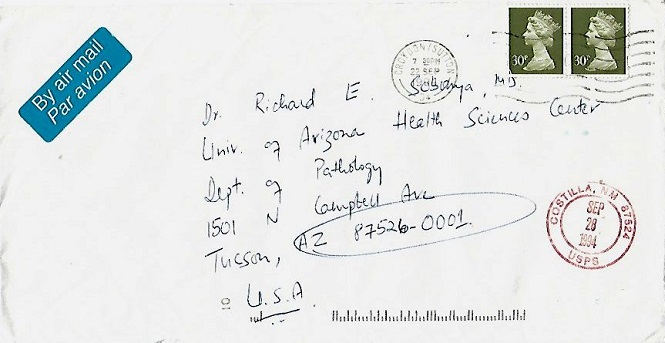 By air mail
Par avion
CROYDON/SUTTON
22 SEP
30P 30P
Dr. Richard E. Sobonya, M.D.
Univ. of Arizona Health Sciences Center
Dept. of Pathology
1501 N Campbell Ave
Tucson, AZ 87526-0001.
U.S.A.
COSTILLA, NM 87524
SEP
28
1994
USPS